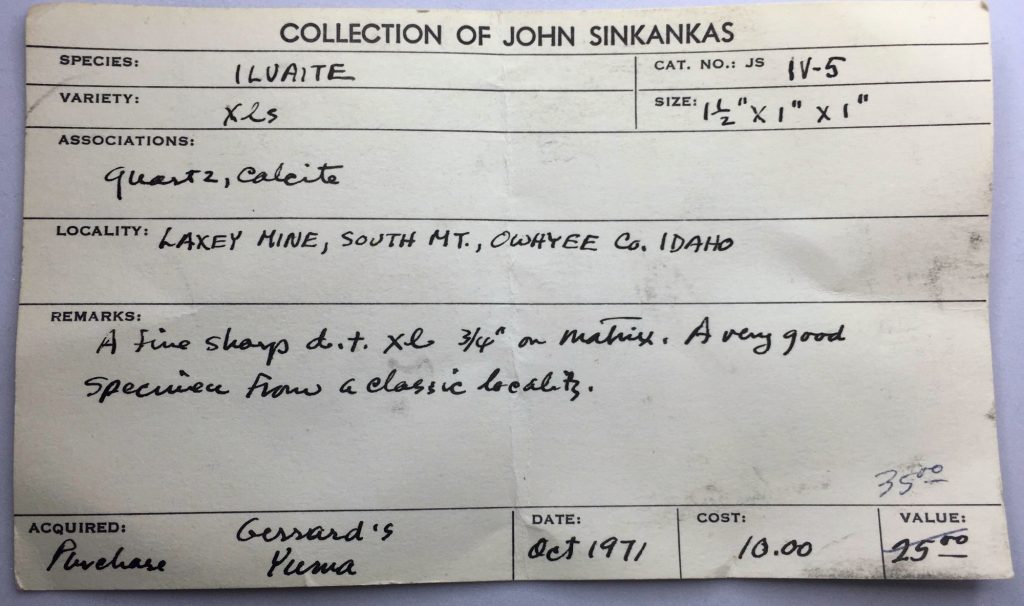 COLLECTION OF JOHN SINKANKAS
SPECIES: ILVAITE
CAT. NO.: JS IV-5
VARIETY: Xls
SIZE: 1 1/2" X 1" X 1"
ASSOCIATIONS:
quartz, calcite
LOCALITY: LAXEY MINE, SOUTH MT., OWHYEE Co. IDAHO
REMARKS:
A fine sharp d.t. xl 3/4" on matrix. A very good
specimen from a classic locality.
35 00
ACQUIRED: Gerrard's
Purchase Yuma
DATE:
Oct 1971
COST:
10.00
VALUE:
25 00